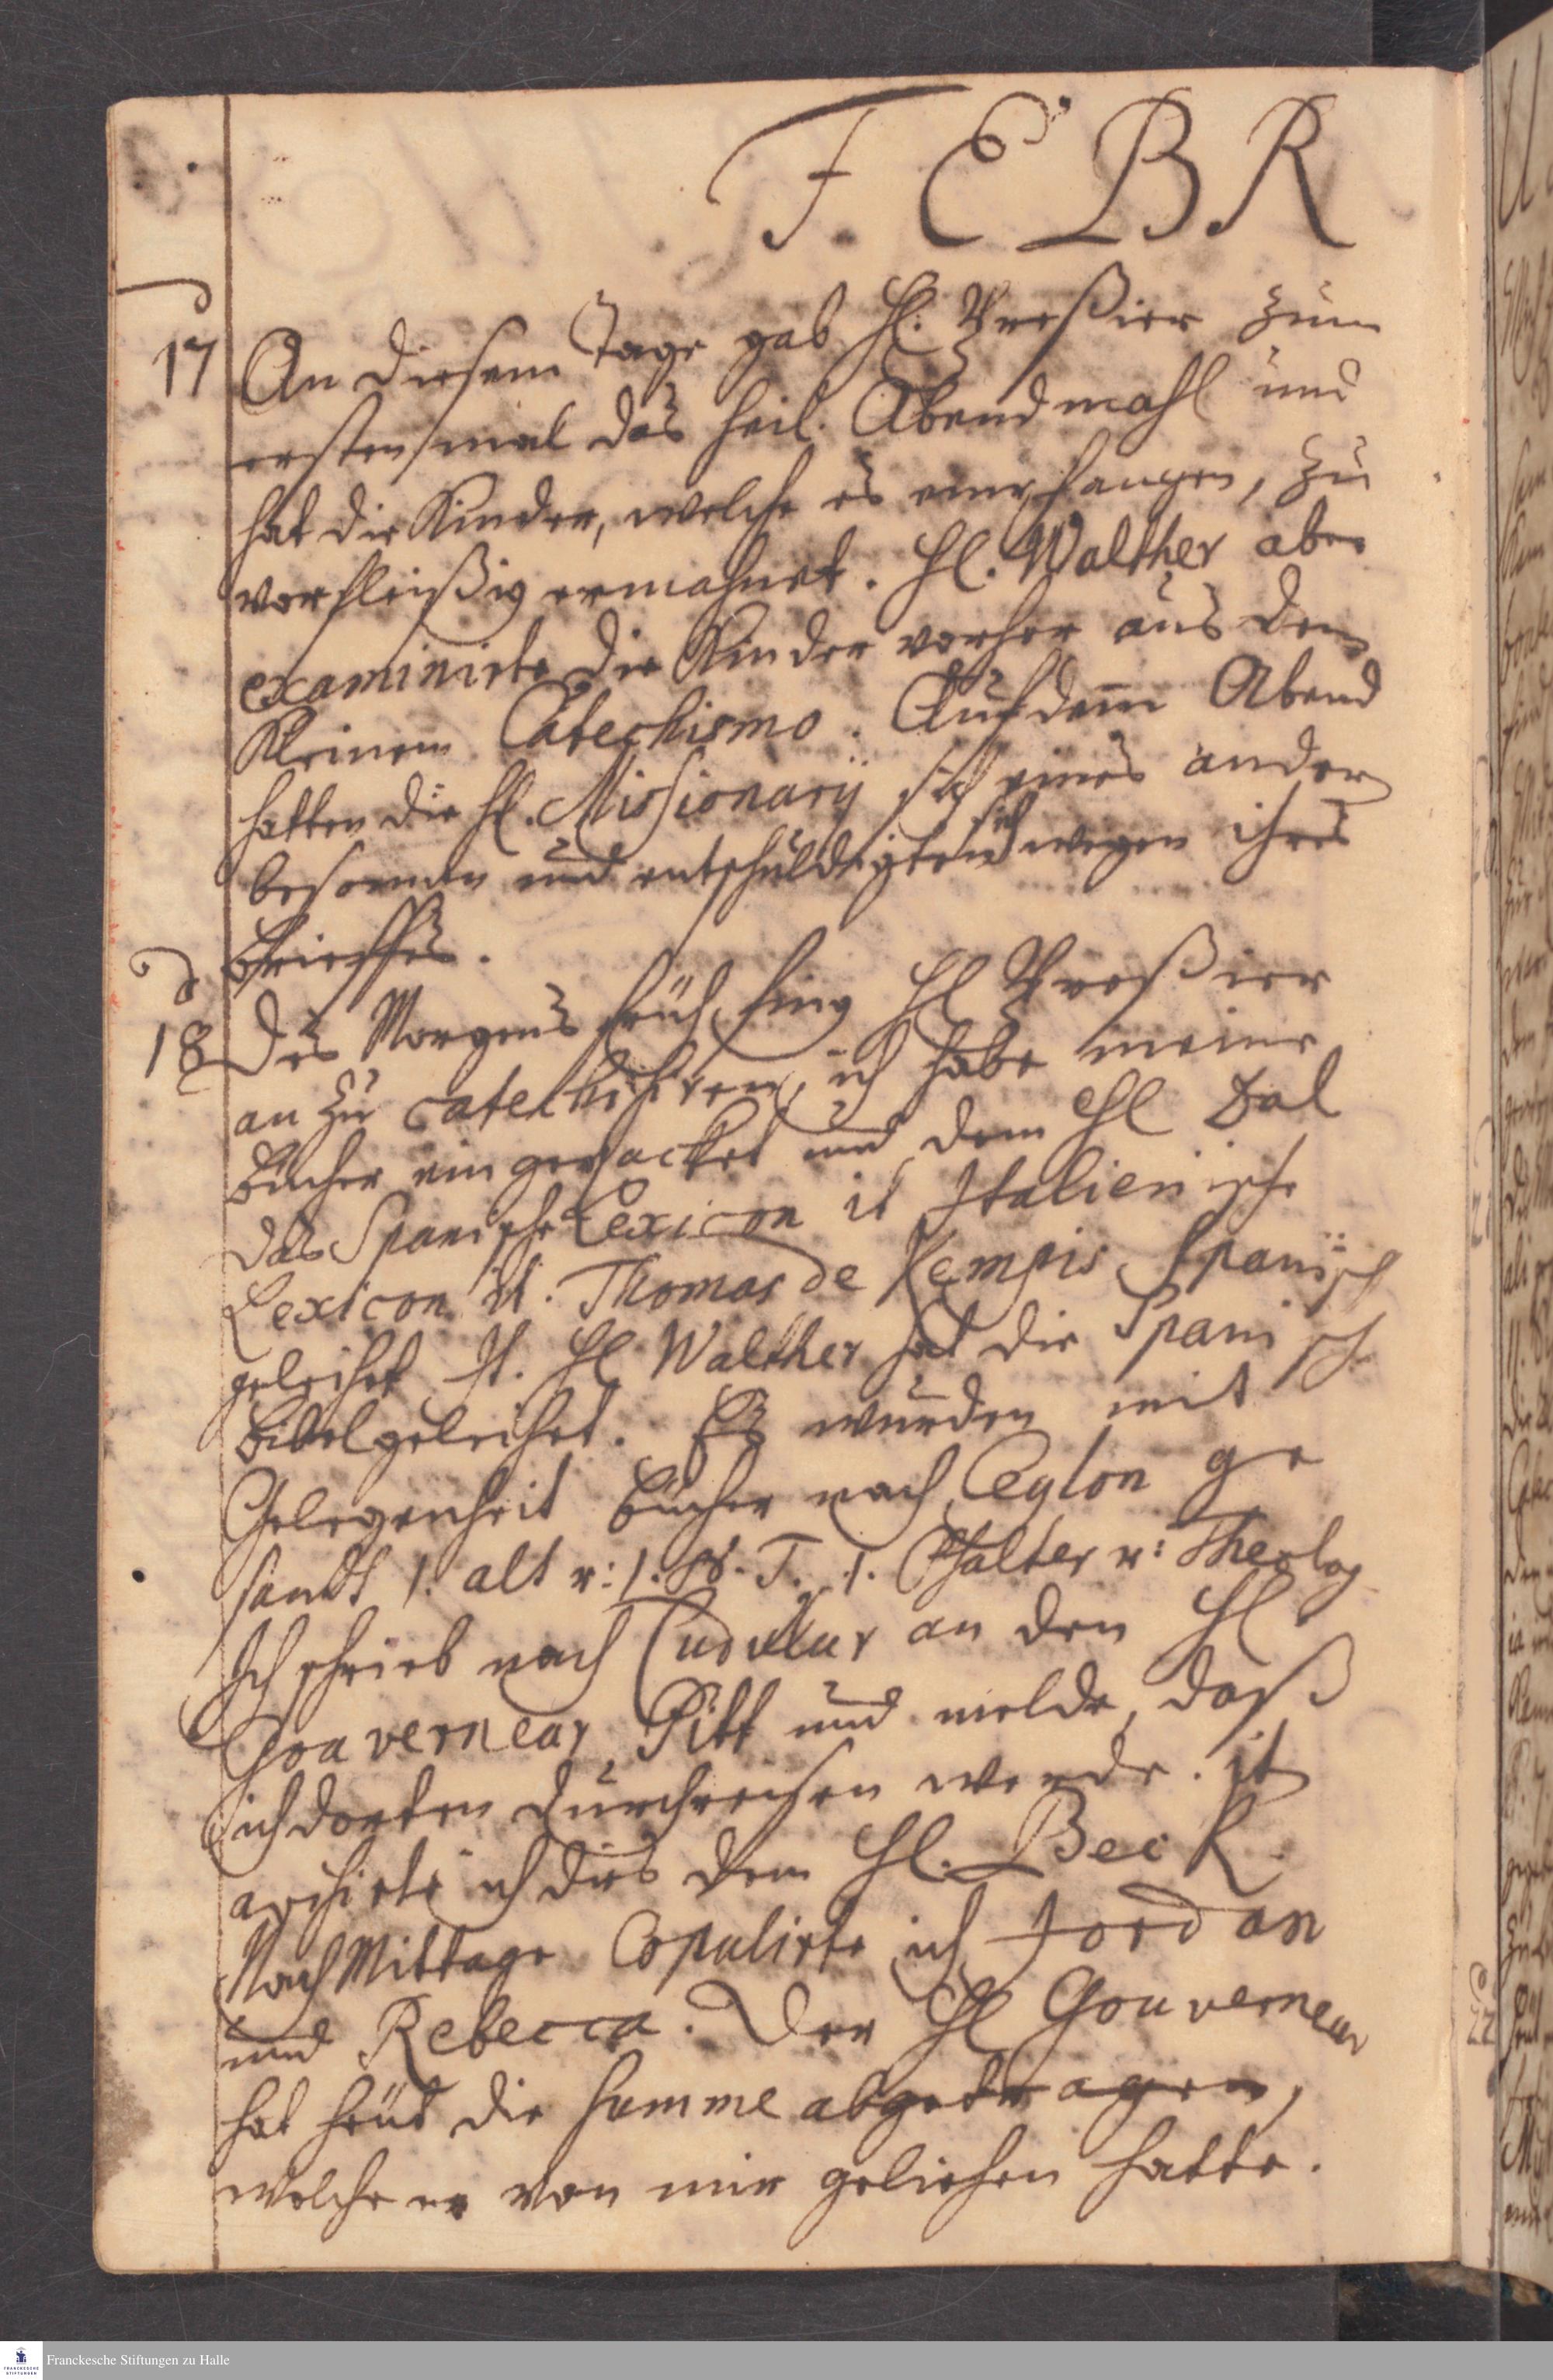 F. E B R
17 An diesem Tage gab H. Preßier zum
ersten mal das heil. Abendmahl und
hat die Kinder, welche es empfangen, zu
vor fleißig ermahnet. H. Walther aber
examinirte die Kinder vorher aus dem
Kleinem Catechismo. Auf dem Abend
hatten die H. Missionarij sich eines andern
besonnen und entschuldigten sich wegen ihres
Brieffes.
18 Des Morgens früh fing H Preßier
an zu catechisiren, ich habe meine
Bücher ein gepacket und dem H Dal
das Spanische Lexicon it Italienische
Lexicon it. Thomas de Kempis Spanisch
geleihet It. H Walther hat die Spanisch
Bibel geleihet. Es wurden mit
Gelegenheit Bücher nach Ceylon ge
sandt 1. alt u: 1. N. T. 1. Psalter u: Theolog
Ich schrieb nach Cudulur an den H
Gouverneur Pitt und melde, daß
ich dorten durchreisen werde. it
avisirte ich dies dem H. Beck.
Nach Mittage Copulirte ich Jordan
und Rebecca. Der H Gouverneur
hat heut die Summe abgetragen,
welche er von mir geliehen hatte.
Franckesche Stiftungen zu Halle